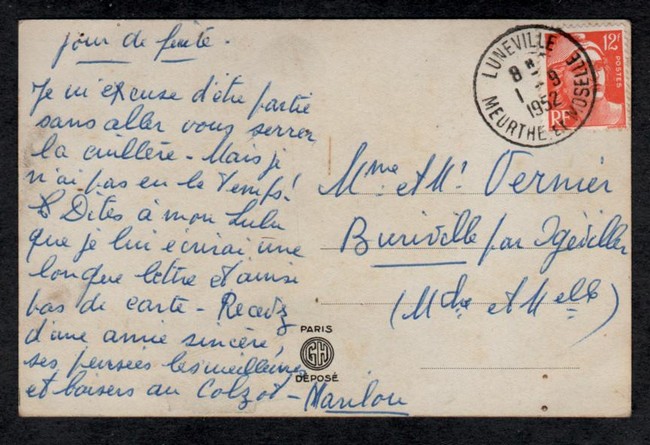 jour de fête.
Je m'excuse d'être partie
sans aller vous serrer
la cuillère - Mais je
n'ai pas eu le temps!
Dites à mon Lulu
que je lui écrirai une
longue lettre et
pas de carte - Recevez
d'une amie sincère,
ses pensées les meilleures
et baisers au - Marilou
LUNEVILLE
8 H
1 - 9
1952
MEURTHE-ET-MOSELLE
12F
POSTES
RF
Mme et Mr Vernier
Buriville par Ogéviller
(Mthe et Melle)
PARIS
GH
DÉPOSÉ